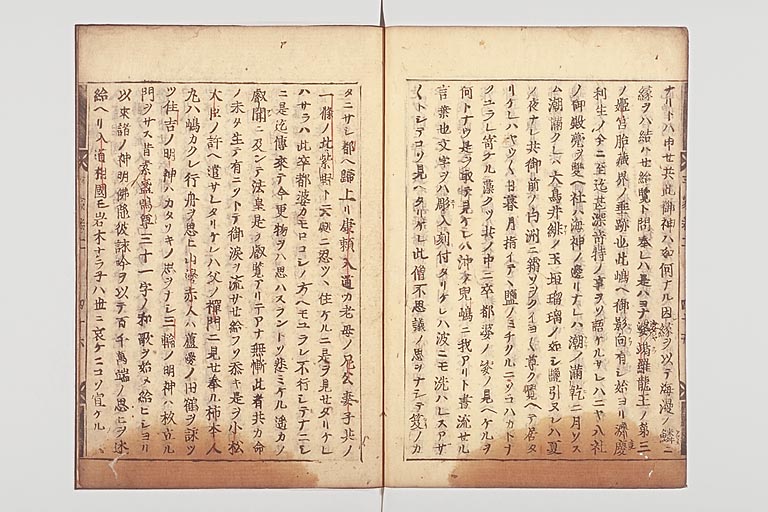 ナリトハ申セ共此御神ハ如何ナル因縁ヲ以テ海漫ノ鱗ニ
縁ヲハ結ハセ給覧ト問奉レハ是ハヨナ娑竭羅龍王ノ第三
ノ姫宮胎蔵界ノ垂跡也此嶋ヘ御影向有シ始ヨリ済度
利生ノ今ニ至迄甚深奇特ノ事ヲソ語ケルサレハニヤ八社
ノ御殿甍ヲ雙ヘ社ハ海神ノ邊リナレハ潮ノ満乾ニ月ソス
ム潮満クレハ大鳥井緋ノ玉垣瑠璃ノ如シ塩引ヌレハ夏
ノ夜ナレ共御前ノ白洲ニ霜ソヲクイヨ〳〵尊ク覚ヘテ居タ
リケレハヤウ〳〵日暮月指イテヽ塩ノミチクルニソコハカトナ
クユラレ寄ケル藻クツ共ノ中ニ卒都婆ノ姿ノ見ヘケルヲ
何トナウ是ヲ取テ見ケレハ沖ノ小嶋ニ我アリト書流セル
言葉也文字ヲハ彫入刻付タリケレハ波ニモ洗ハレスアサ
〳〵トシテコソ見ヘケレ此僧不思議ノ思ヲナシテ笈ノカ
タニサシ都ヘ歸上リ康頼入道カ老母ノ尼公妻子共ノ
一條ノ北紫野ト云處ニ忍ツヽ住ケルニ是ヲ見セタリケレ
ハサラハ此卒都婆カモロコシノ方ヘモユラレ不行シテナニシ
ニ是迄傳来テ今更物ヲハ思ハスラントソ悲ミケル遥カノ
叡聞ニ及ンテ法皇是ヲ叡覧アリテアナ無慚此者共カ命
ノ未タ生テ有ニコソトテ御涙ヲ流サセ給フソ忝キ是ヲ小松
大臣ノ許ヘ遣サレタリケレハ父ノ禅門ニ見セ奉ル柿本人
丸ハ嶋カクレ行舟ヲ思ヒ山邊赤人ハ蘆邊ノ田鶴ヲ詠ツ
ツ住吉ノ明神ハカタソキノ思ヲナシ三輪ノ明神ハ杉立ル
門ヲサス昔素盞嗚尊三十一字ノ和歌ヲ始メ給ヒショリ
以来諸ノ神明佛陀彼詠吟ヲ以テ百千萬端ノ思ヒヲ述
給ヘリ入道相國モ岩木ナラ子ハ世ニ哀ケニコソ宣ケル